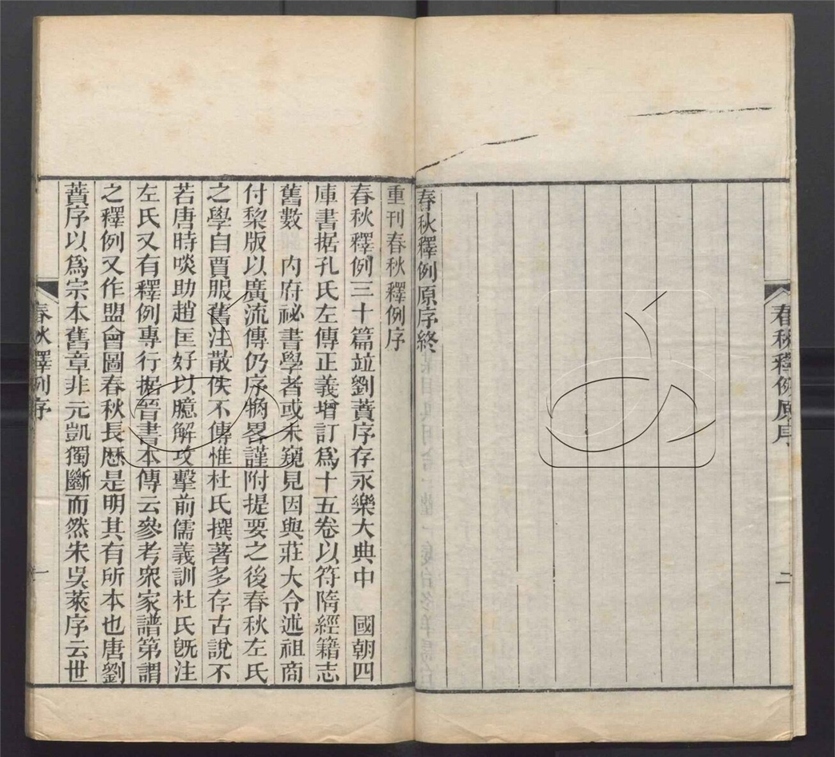 春秋釋例原序
二
春秋釋例原序終
重刊春秋釋例序
春秋釋例三十篇竝劉蕡序存永樂大典中 國朝四
庫書据孔氏左傳正義增訂為十五卷以符隋經籍志
舊數 內府祕書學者或未窺見因與莊大令述祖商
付棃版以廣流傳仍序梗畧謹附提要之後春秋左氏
之學自賈服舊注散佚不傳惟杜氏撰著多存古說不
若唐時啖助趙匡好以臆解攻擊前儒義訓杜氏旣注
左氏又有釋例專行据晉書本傳云參考衆家譜第謂
之釋例又作盟會圖春秋長厯是明其有所本也唐劉
蕡序以為宗本舊章非元凱獨斷而然宋吳萊序云世
春秋釋例序
一